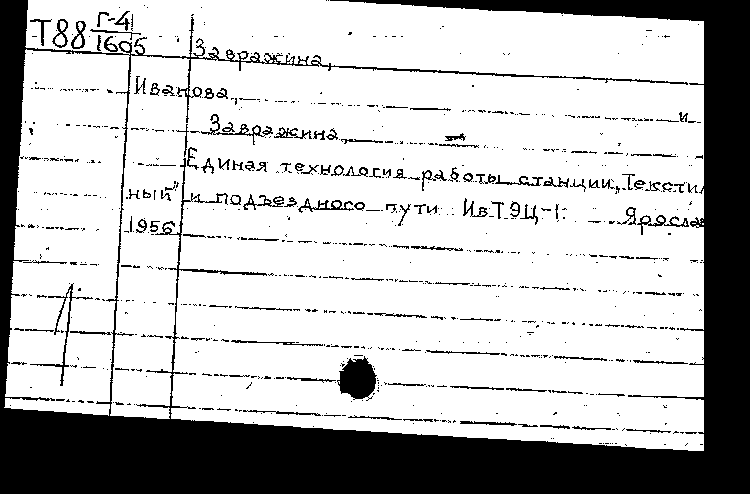 Т88 Г-4
1605
Завражина,
Иванова, и
Завражина,
Единая технология работы станции „Тексти
ный" и подъездного пути ИвТЭЦ-1. Яросла
1956
1